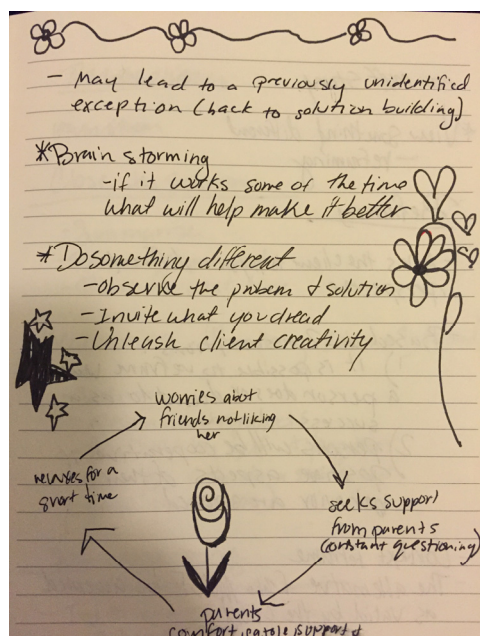 - May lead to a previously unidentified
exception (back to solution building)
*Brain storming
-if it works some of the time
what will help make it better
*Do something different
-Observe the problem & solution
-Invite what you dread
-Unleash client creativity
worries about
friends not liking
her
seeks support
from parents
(constant questioning)
parents
comfort, support &
relaxes for a
short time